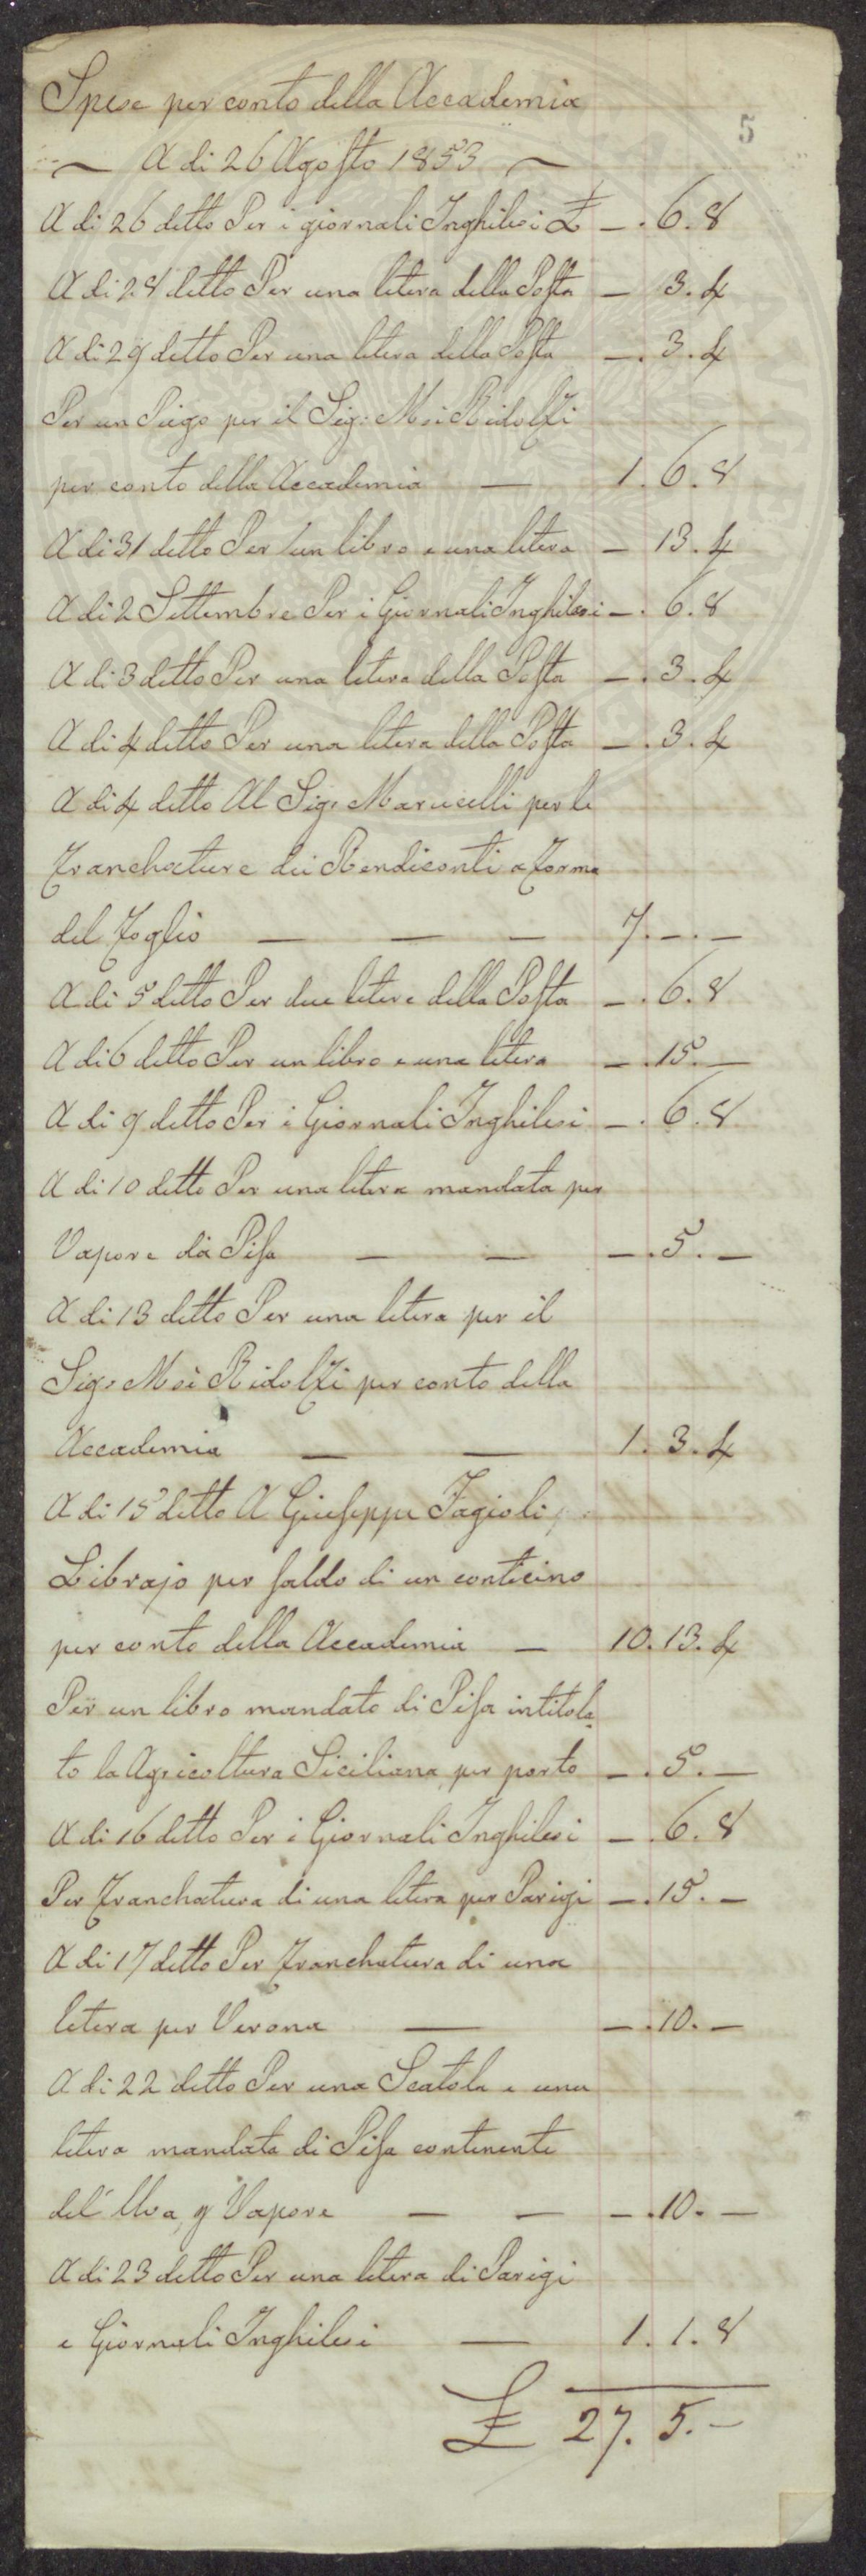 Spese per conto della Accademia
5
~ A di 26 Agosto 1853 ~
A di 26 detto Per i giornali Inghilesi £ —. 6. 8
A di 28 detto Per una letera della Posta — 3. 4
A di 29 detto Per una letera della Posta —. 3. 4
Per un Piego per il Sig: Msi Ridolfi
per conto della Accademia — 1. 6. 8
A di 31 detto Per un libro e una letera — 13. 4
A di 2 Settembre Per i Giornali Inghilesi —. 6. 8
A di 3 detto Per una letera della Posta —. 3. 4
A di 4 detto Per una letera della Posta —. 3. 4
A di 4 detto Al Sig: Marucelli per le
franchature dei Rendiconti a forma
del foglio — — — 7. —. —
A di 5 detto Per due letere della Posta —. 6. 8
A di 6 detto Per un libro e una letera —. 15. —
A di 9 detto Per i Giornali Inghilesi —. 6. 8
A di 10 detto Per una letera mandata per
Vapore da Pisa — — —. 5. —
A di 13 detto Per una letera per il
Sig: Msi Ridolfi per conto della
Accademia — — 1. 3. 4
A di 15 detto A Giuseppe Fagioli
Librajo per saldo di un conticino
per conto della Accademia — 10. 13. 4
Per un libro mandato di Pisa intitola
to la Agricoltura Siciliana per porto —. 5. —
A di 16 detto Per i Giornali Inghilesi —. 6. 8
Per franchatura di una letera per Parigi —. 15. —
A di 17 detto Per franchatura di una
letera per Verona — —. 10. —
A di 22 detto Per una Scatola e una
letera mandata di Pisa contenente
del' Uva, p Vapore — — —. 10. —
A di 23 detto Per una letera di Parigi
e Giornali Inghilesi — 1. 1. 8
£ 27. 5. —